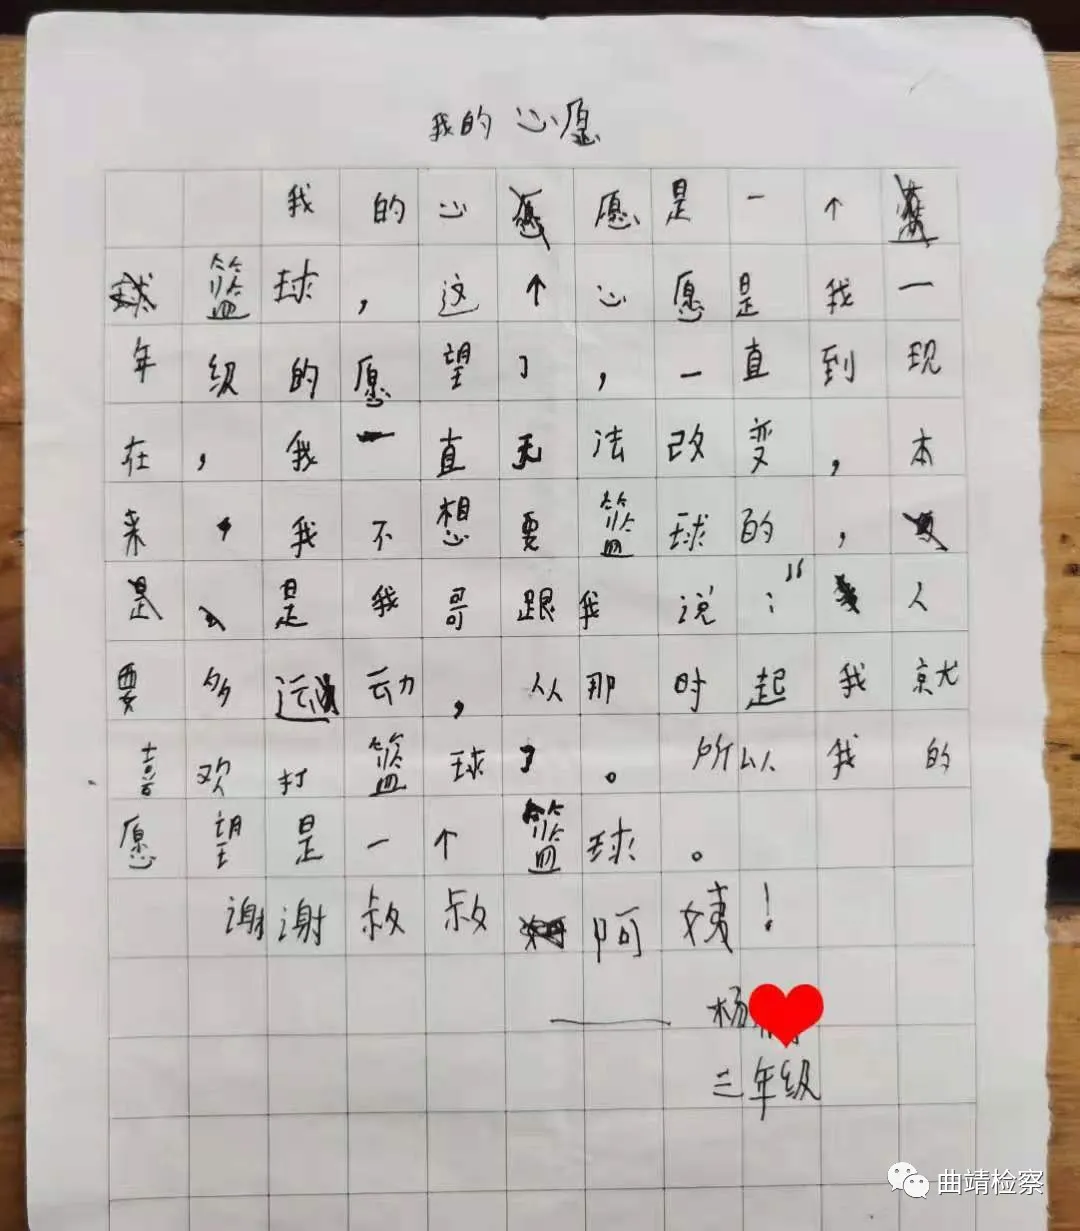 我的心愿
我的心愿是一个
篮球，这个心愿是我一
年级的愿望了，一直到现
在，我一直无法改变，本
来，我不想要篮球的，
是、是我哥跟我说：“人
要多运动，从那时起我就
喜欢打篮球了。所以我的
愿望是一个篮球。
谢谢叔叔阿姨！
——杨
三年级
曲靖检察